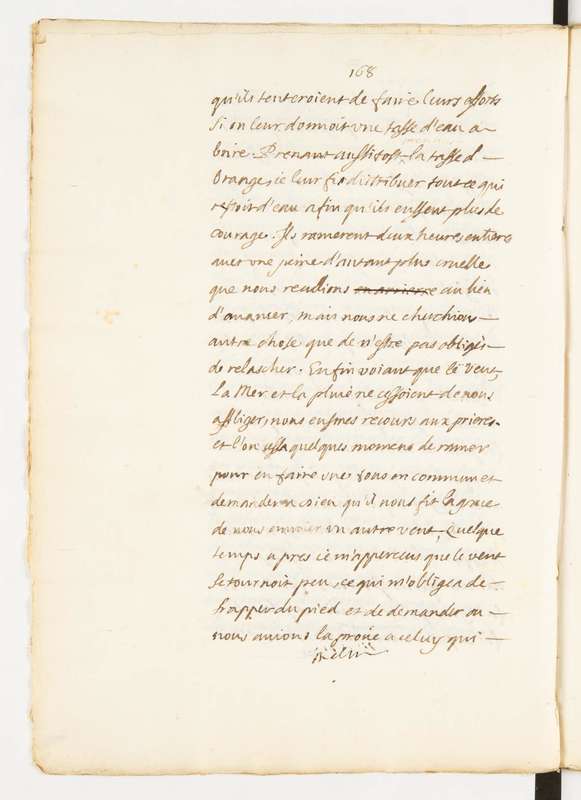 168
qu'ils tenteroient de faire leurs efforts
si on leur donnoit une tasse d'eau a
boire. Prenant aussitost la tasse d
orange, ie leur fis distribuer tout ce qui
restoit d'eau afin qu'ils eussent plus de
courage. Ils ramerent deux heures entieres
avec une peine d'autant plus cruelle
que nous recullions en arriere au lieu
d'avancer, mais nous ne cherchions
autre chose que de n'estre pas obligés
de relascher. Enfin voiant que le vent,
la Mer et la pluie ne cessoient de nous
affliger, nous eusmes recours aux prieres.
et l'on cessa quelques momens de ramer
pour en faire une tous en commun et
demander a Dieu qu'il nous fit la grace
de nous envoier un autre vent. Quelque
temps apres ie m'apperceus que le vent
se tournoit peu, ce qui m'obligea de
frapper du pied et de demander ou
nous avions la proüe a celuy qui